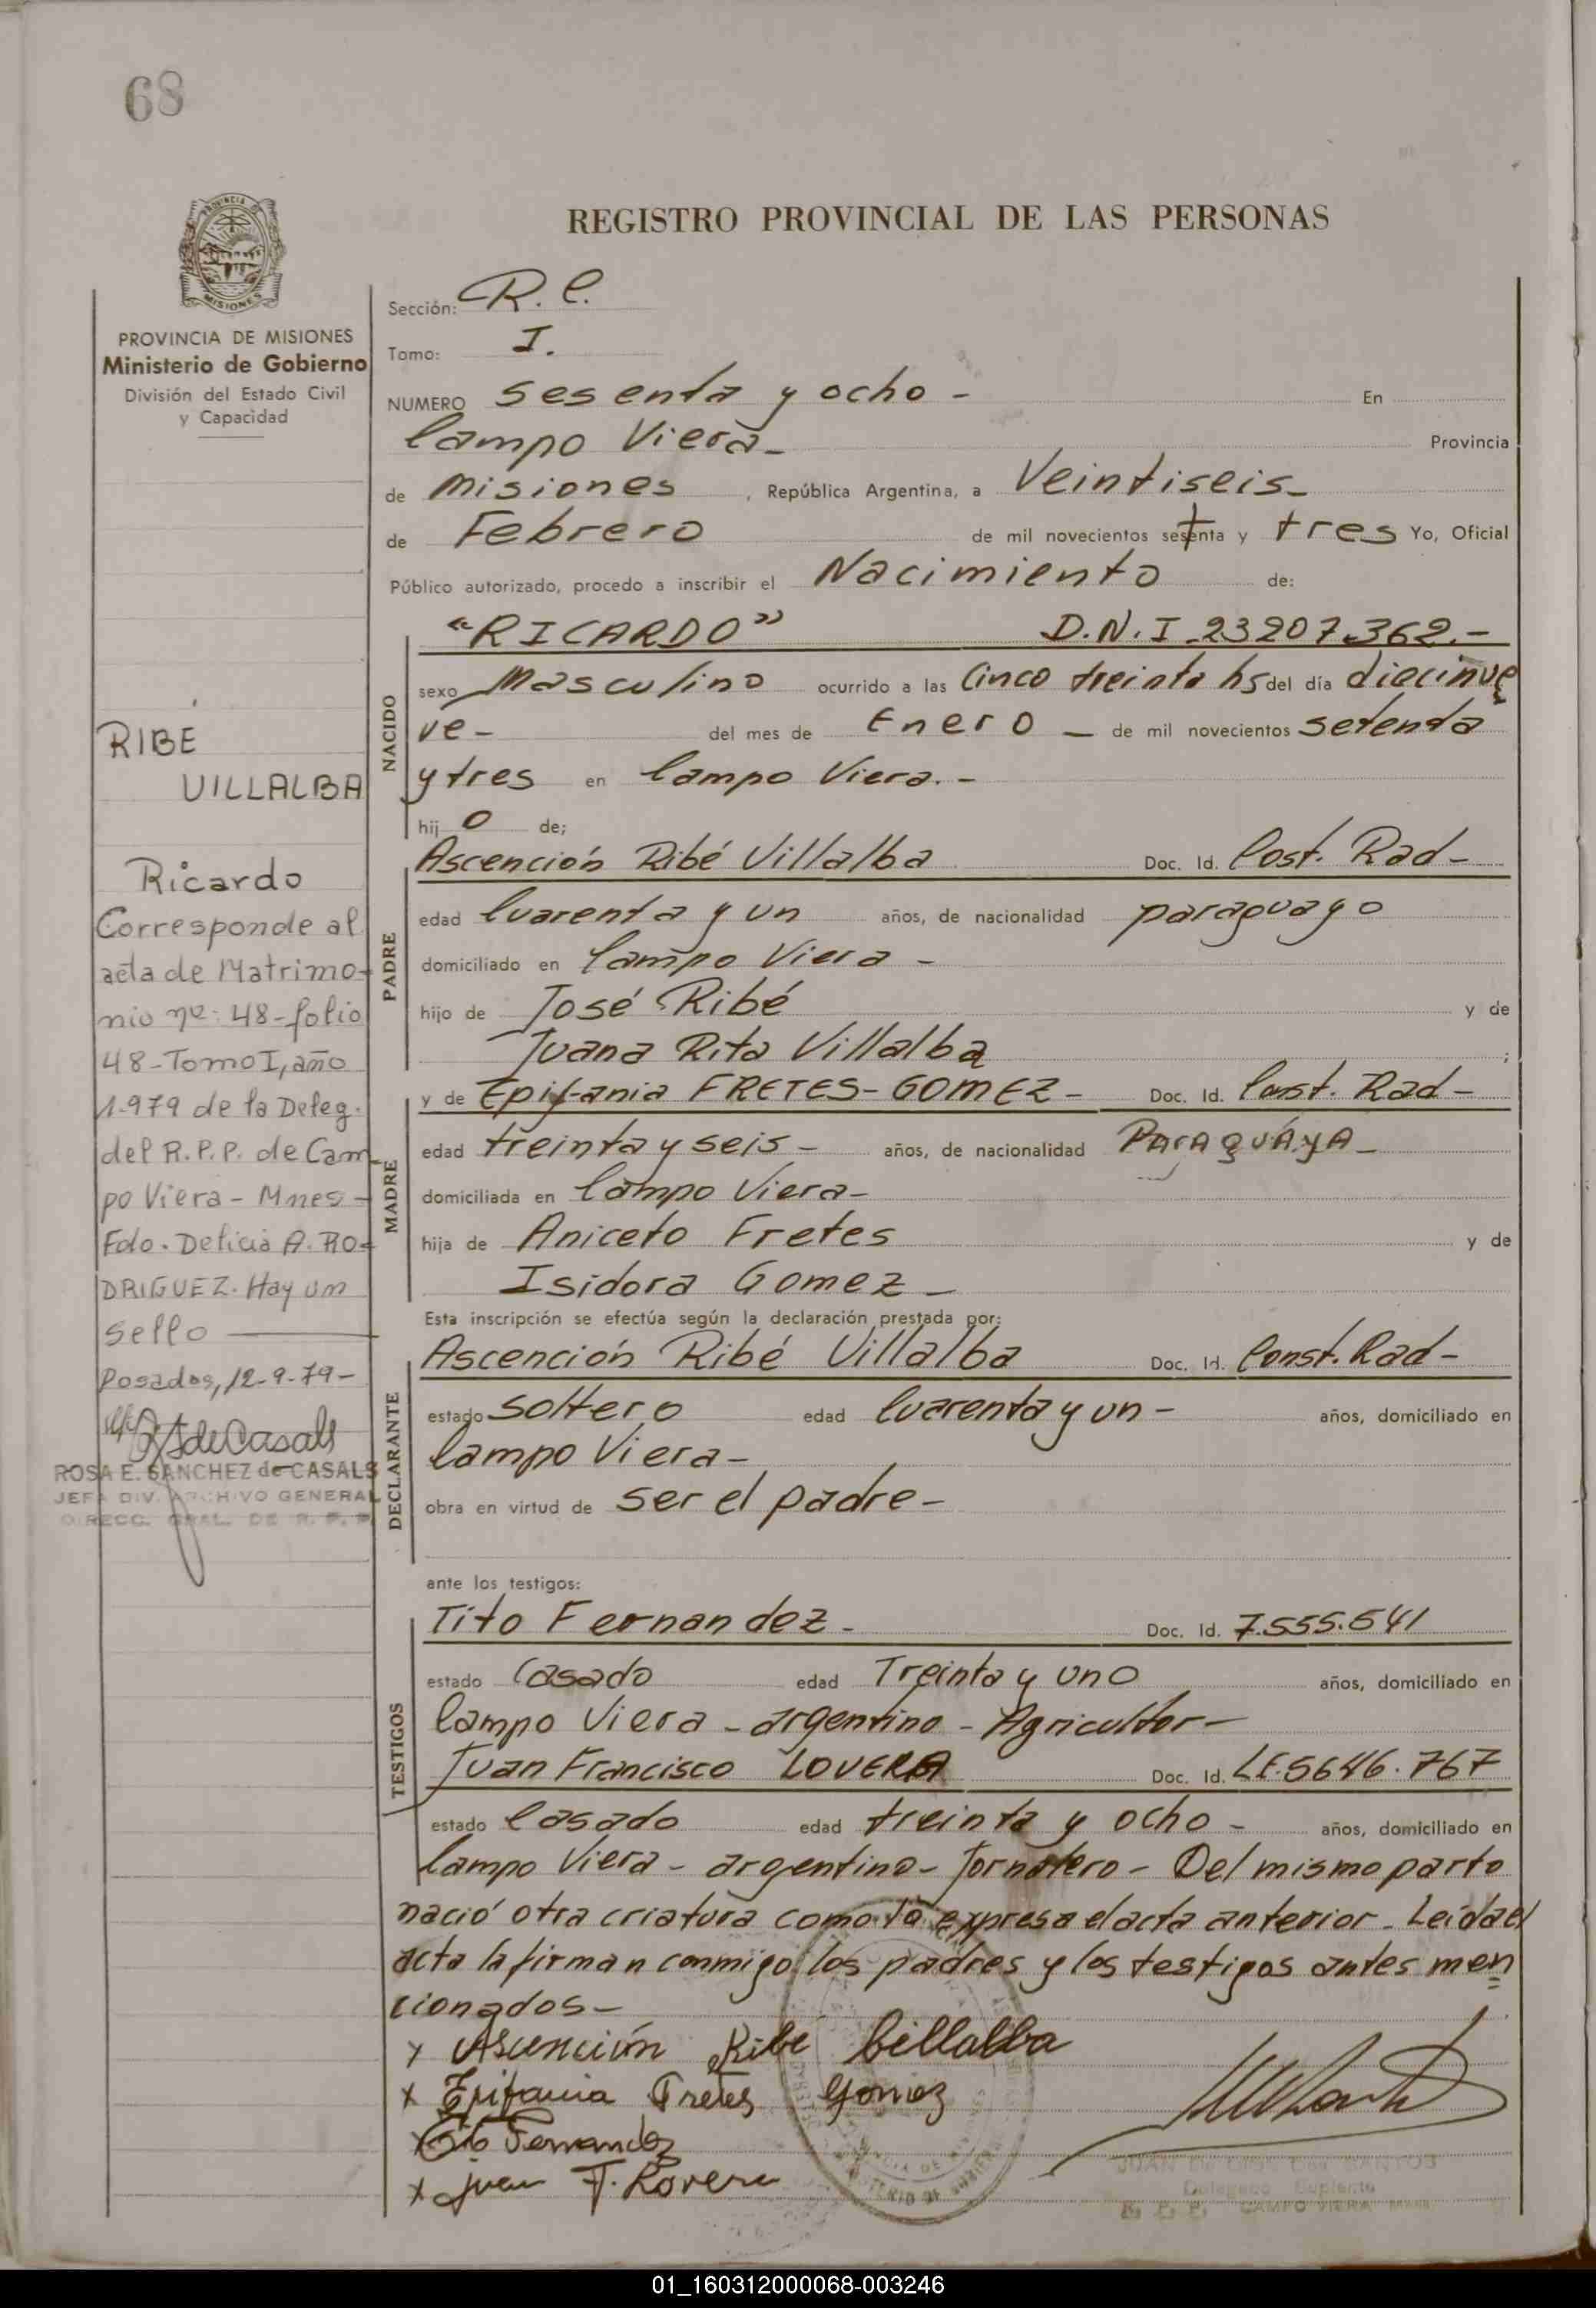 68
REGISTRO PROVINCIAL DE LAS PERSONAS
PROVINCIA DE MISIONES
Ministerio de Gobierno
División del Estado Civil
y Capacidad
Sección: R.C.
Tomo: I.
NUMERO sesenta y ocho - En
Campo Viera-
Provincia
de Misiones, República Argentina, a Veintiseis-
de Febrero de mil novecientos setenta y tres Yo, Oficial
Público autorizado, procedo a inscribir el Nacimiento de:
"RICARDO" D.N.I. 23207.362.-
NACIDO
sexo Masculino ocurrido a las Cinco treinta hs del día diecinue
ve- del mes de Enero - de mil novecientos setenta
y tres en Campo Viera.-
hij o de;
PADRE
Ascención Ribé Villalba Doc. Id. Cost. Rad-
edad Cuarenta y un años, de nacionalidad paraguayo
domiciliado en Campo Viera -
hijo de José Ribé y de
Juana Rita Villalba ;
MADRE
y de Epifania FRETES-GOMEZ- Doc. Id. Const. Rad-
edad treinta y seis- años, de nacionalidad PARAGUAYA-
domiciliada en Campo Viera-
hija de Aniceto Fretes y de
Isidora Gomez-
Esta inscripción se efectúa según la declaración prestada por:
DECLARANTE
Ascención Ribé Villalba Doc. Id. Const. Rad-
estado soltero edad Cuarenta y un- años, domiciliado en
Campo Viera-
obra en virtud de ser el padre-
ante los testigos:
TESTIGOS
Tito Fernandez- Doc. Id. 7.555.541
estado Casado edad Treinta y uno años, domiciliado en
Campo Viera-argentino-Agricultor-
Juan Francisco LOVERA Doc. Id. LE.5646.767
estado Casado edad treinta y ocho- años, domiciliado en
Campo Viera-argentino-Jornalero-Del mismo parto
nació otra criatura como lo expresa el acta anterior-Leida el
acta la firman conmigo los padres y los testigos antes men
cionados-
x Ascención Ribe Billalba
x Epifania Fretes Gomez
x Tito Fernandez
x Juan F. Lovera
Delegado Suplente
CAMPO VIERA
RIBE
VILLALBA
Ricardo
Corresponde al
acta de Matrimo-
nio nº: 48-folio
48-Tomo I, año
1.979 de la Deleg.
del R.P.P. de Cam-
po Viera-Mnes-
Fdo. Delicia A. RO-
DRIGUEZ. Hay un
sello
Posadas, 12-9-79-
ROSA E. SANCHEZ de CASALS
JEFA DIV. ARCHIVO GENERAL
DIRECC. GRAL. DE R. P. P.
01_160312000068-003246